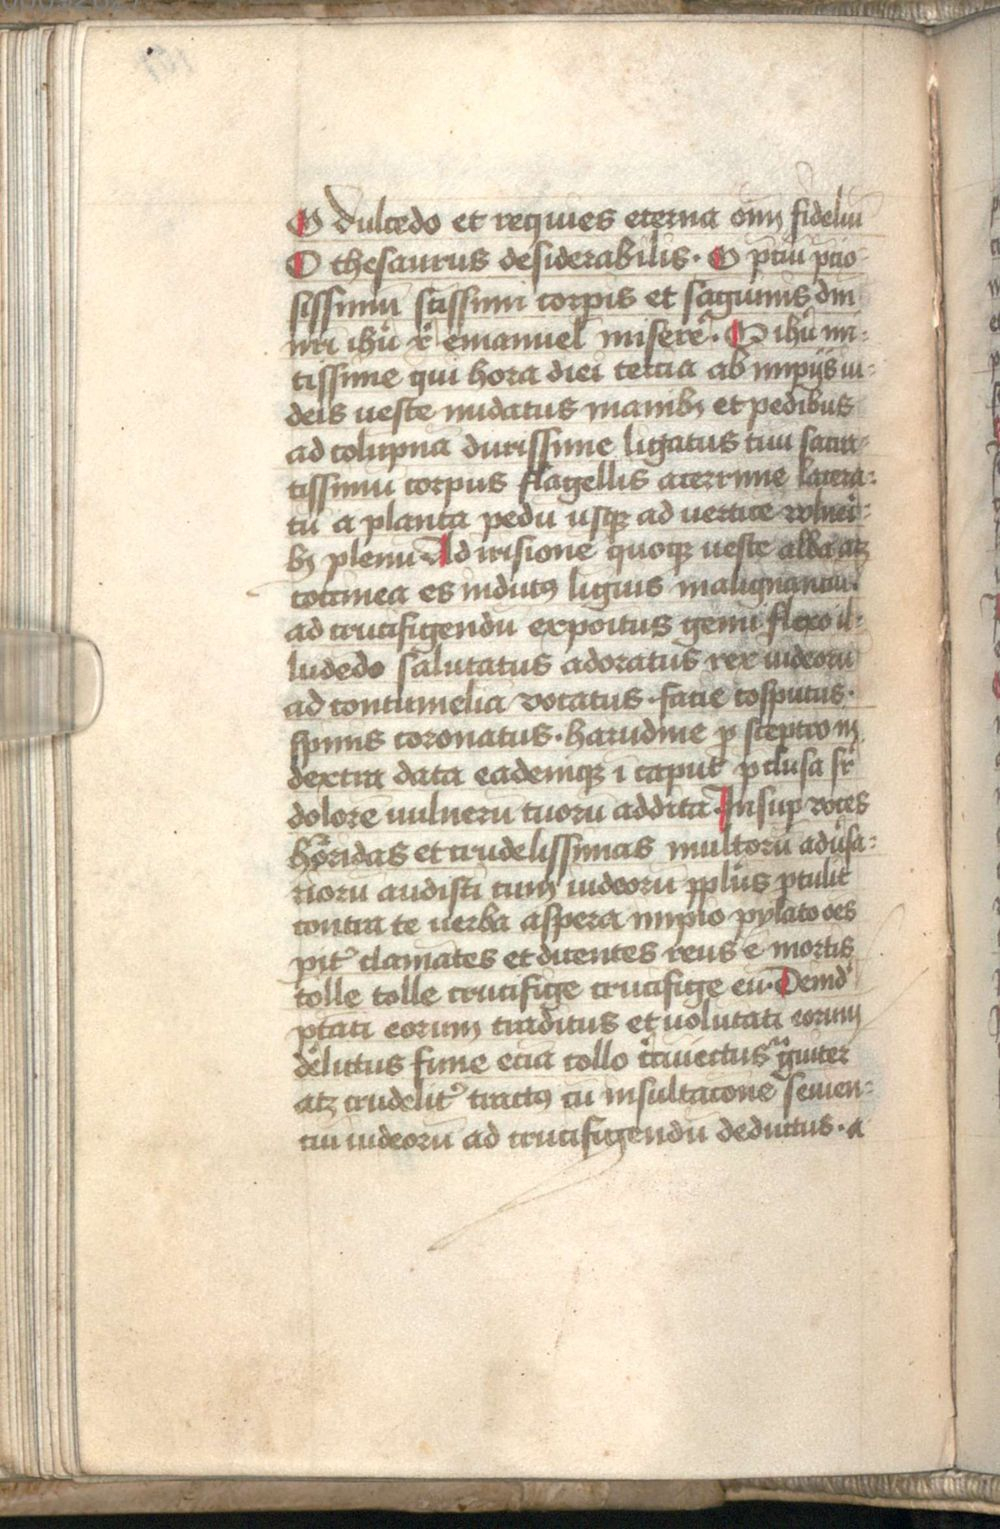 O dulcedo et requies eterna om̄ fideliū
O thesaurus desiderabilis. O p̄ciū p̄cio-
sissimū sc̄issimi corp̄is et sāguinis dn̄i
nr̄i ih̄u xp̄i emanuel miserē. O ih̄u mi-
tissime qui hora diei tercia ab impijs iu-
deis ueste nudatus manibꝫ et pedibus
ad colūpnā durissime ligatus tuū sacra-
tissimū corpus flagellis acerrime lacera-
tū a planta pedū usqꝫ ad uerticē vulneri-
bꝫ plenū Ad irisionē quoqꝫ ueste alba atqꝫ
coccinea es indutꝰ liguis malignanciū.
ad crucifigendū expoītus genu flexo il-
ludēdo salutatus adoratus rex iudeorū
ad contumeliā vocatus. facie cōsputus.
spinis coronatus. harūdine p̱ sceptro in
dextra data eademqꝫ ī caput p̱clusa sr̄
dolorē uulnerū tuorū addita Insup̱ voces
horridas et crudelissimas multorū adūsa-
riorū audisti cum iudeorū pplus p̱tulit
contra te uerba aspera impio pylato oēs
pit̄ clamātes et dicentes reus ē mortis
tolle tolle crucifige crucifige eū. Deind̄
p̱tati eorum traditus et volūtati eorum
delictus fune eciā collo circūiectus ḡuiter
atqꝫ crudelit̄ tractꝰ cū insultacōne seuien-
ciū iudeorū ad crucifigendū deductus. a